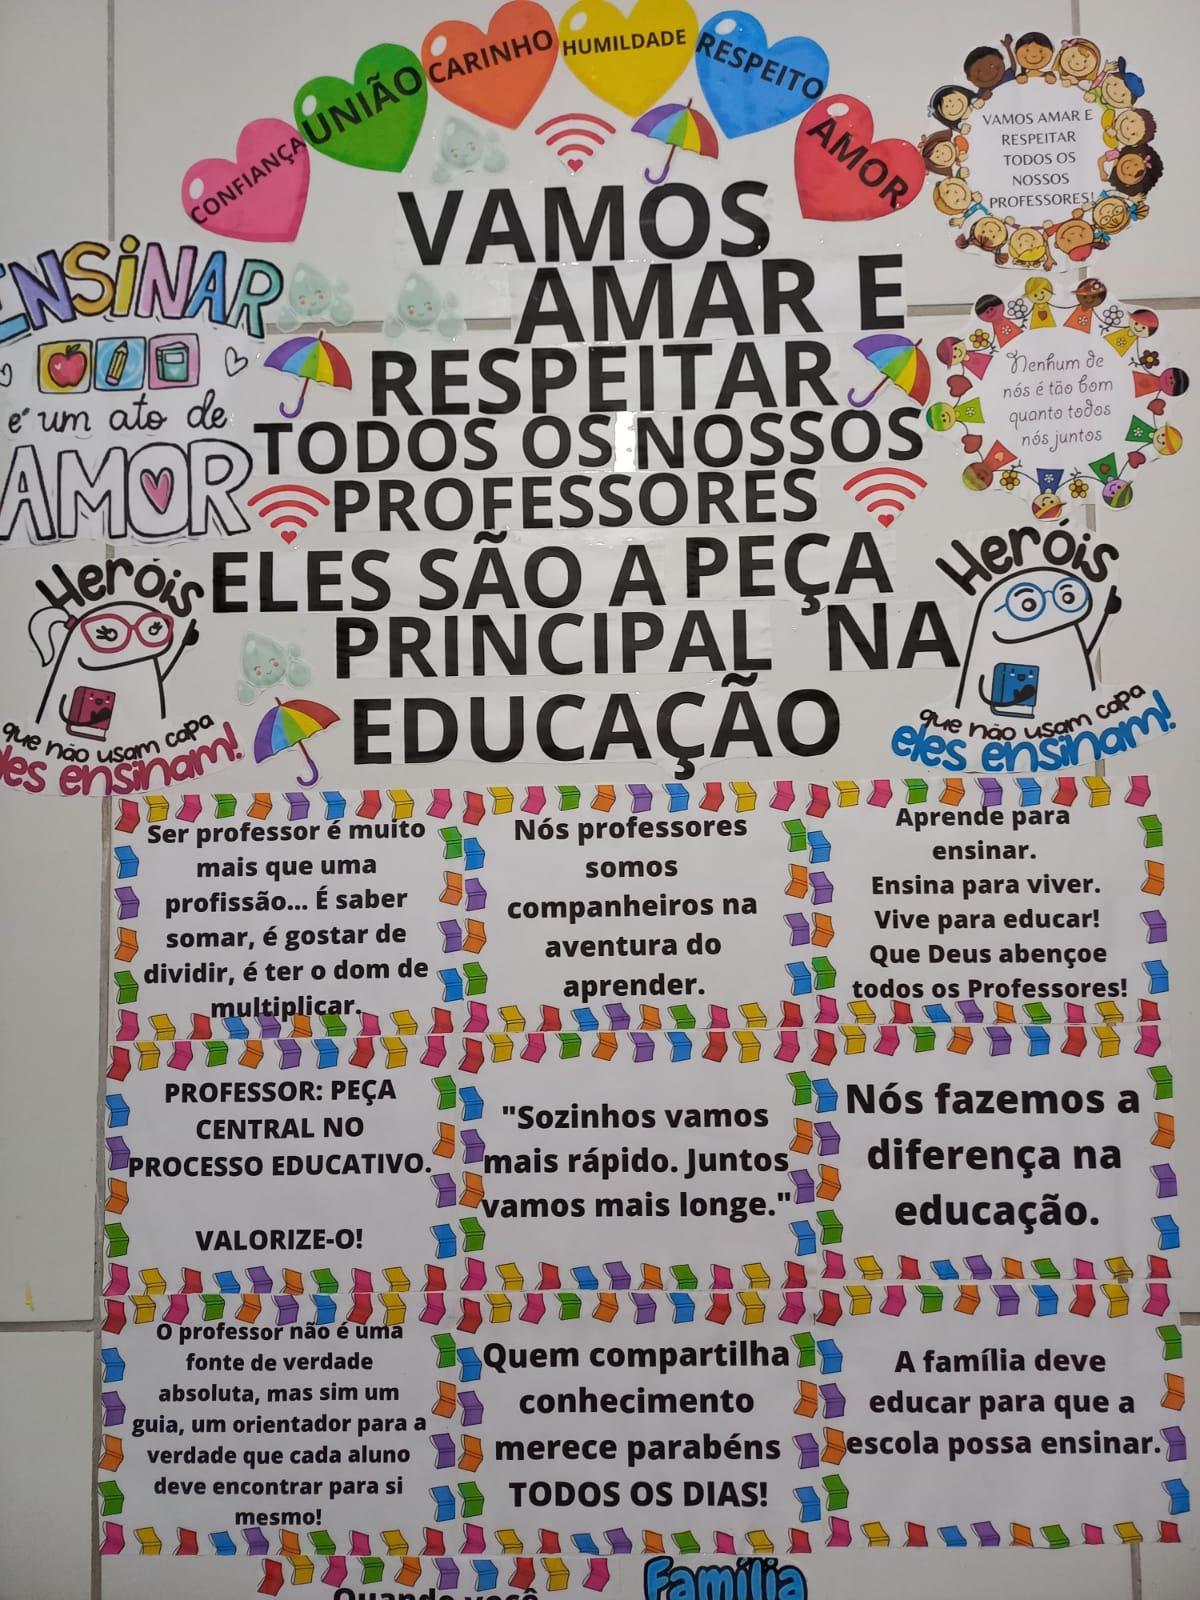 CONFIANÇA
UNIÃO
CARINHO
HUMILDADE
RESPEITO
AMOR
VAMOS AMAR E
RESPEITAR
TODOS OS
NOSSOS
PROFESSORES!
VAMOS
AMAR E
RESPEITAR
TODOS OS NOSSOS
PROFESSORES
ELES SÃO A PEÇA
PRINCIPAL NA
EDUCAÇÃO
ENSINAR
é um ato de
AMOR
Nenhum de
nós é tão bom
quanto todos
nós juntos
Heróis
que não usam capa
eles ensinam!
Heróis
que não usam capa
eles ensinam!
Ser professor é muito
mais que uma
profissão... É saber
somar, é gostar de
dividir, é ter o dom de
multiplicar.
Nós professores
somos
companheiros na
aventura do
aprender.
Aprende para
ensinar.
Ensina para viver.
Vive para educar!
Que Deus abençoe
todos os Professores!
PROFESSOR: PEÇA
CENTRAL NO
PROCESSO EDUCATIVO.
VALORIZE-O!
"Sozinhos vamos
mais rápido. Juntos
vamos mais longe."
Nós fazemos a
diferença na
educação.
O professor não é uma
fonte de verdade
absoluta, mas sim um
guia, um orientador para a
verdade que cada aluno
deve encontrar para si
mesmo!
Quem compartilha
conhecimento
merece parabéns
TODOS OS DIAS!
A família deve
educar para que a
escola possa ensinar.
Quando você
Família